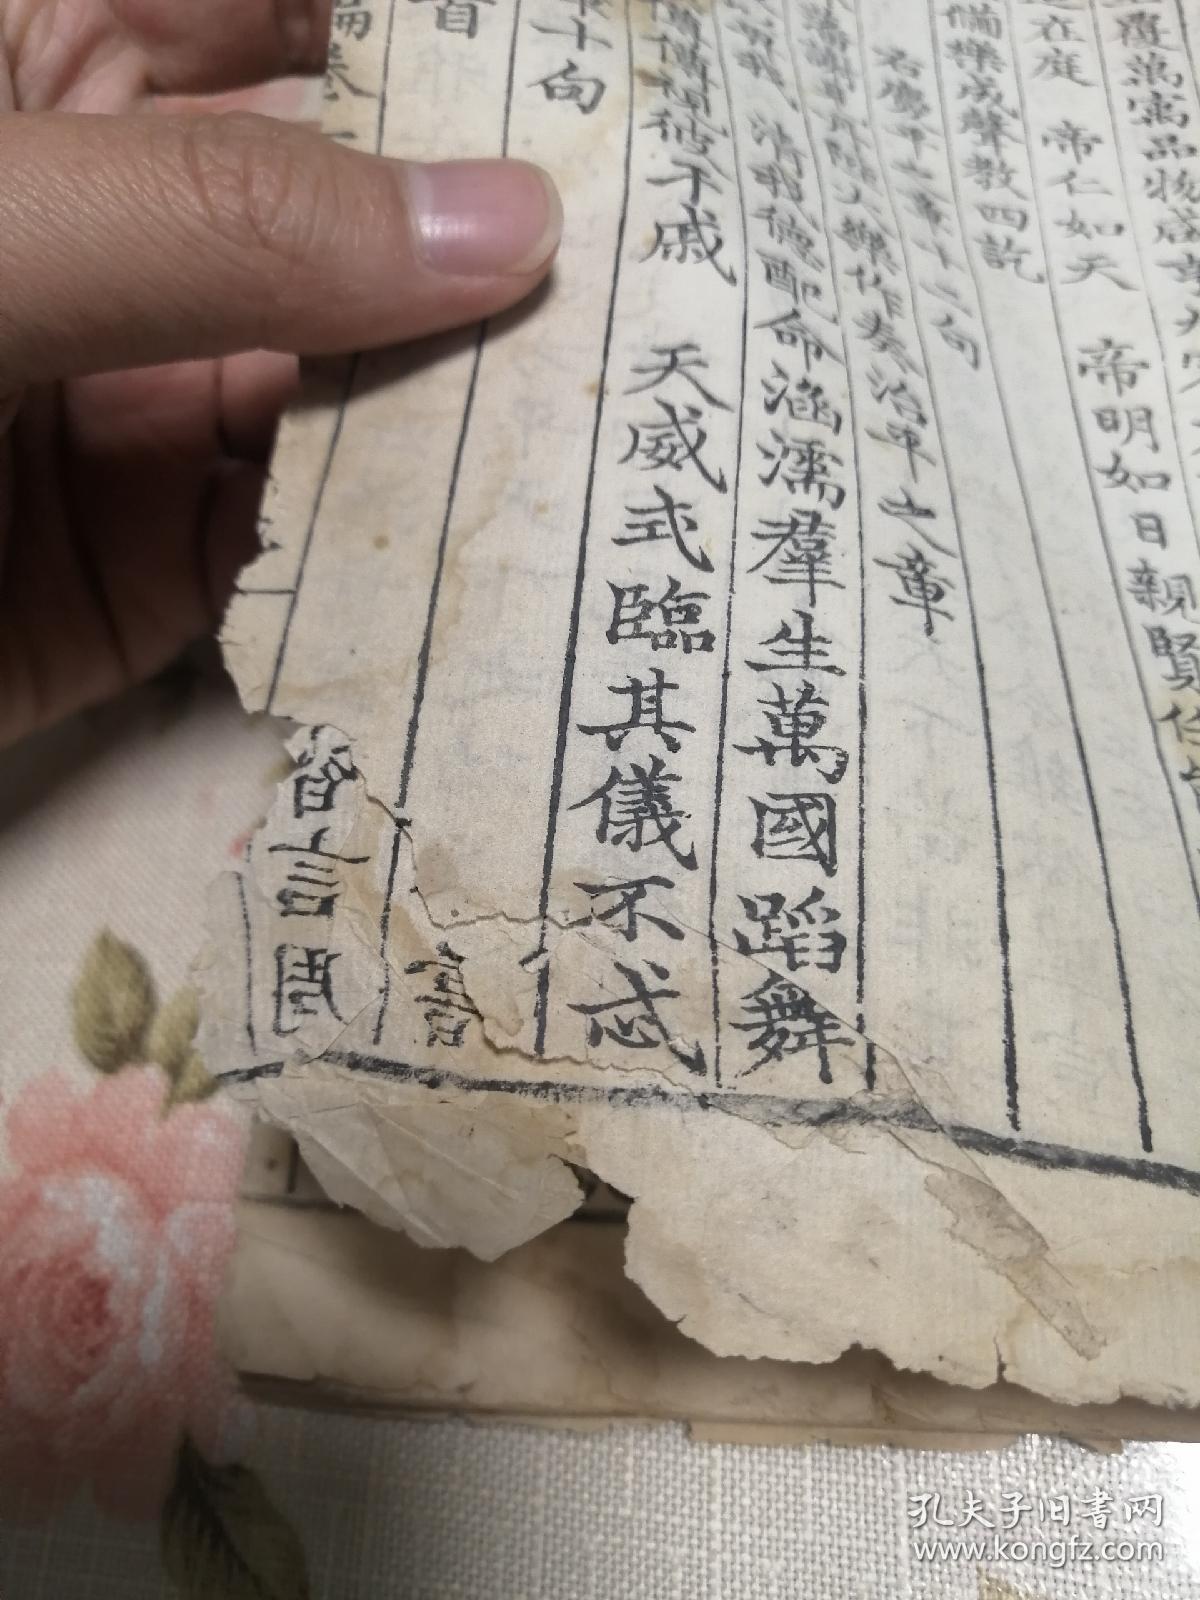 覆萬寓品物咸
在庭 帝仁如天 帝明如日親賢任
備樂成聲教四訖
右慶平之章十二句
大樂作奏治平之章
清我德配命涵濡羣生萬國蹈舞
干戚 天威式臨其儀不忒
十句
首
書
言周
孔夫子旧书网
www.kongfz.com